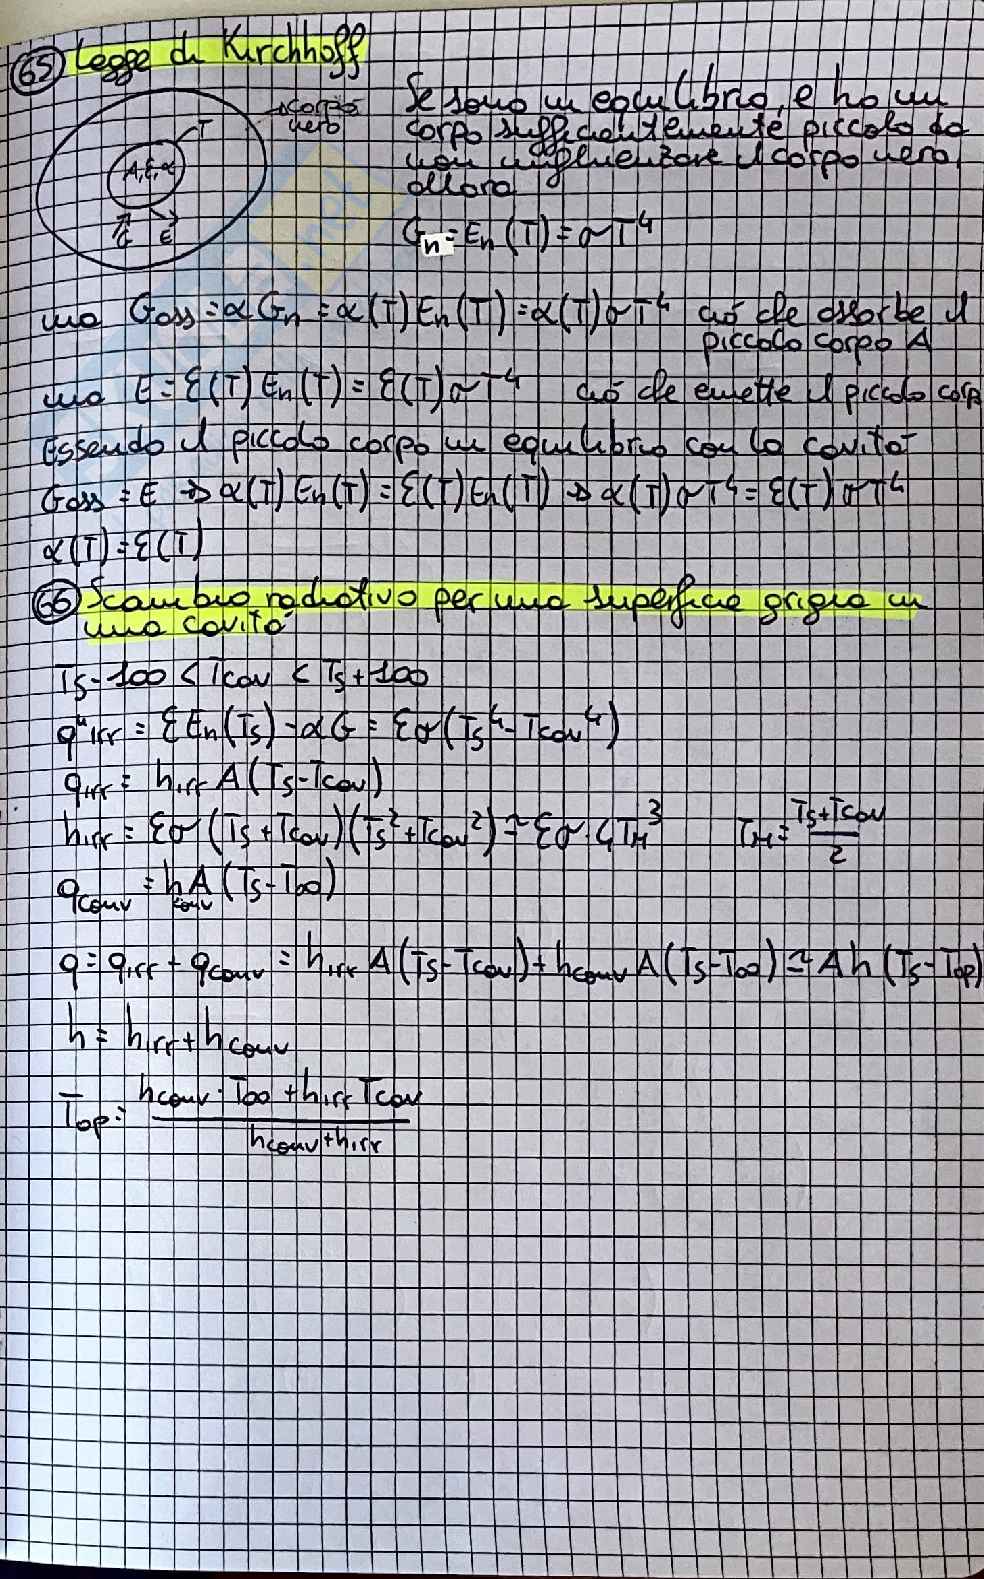 65 Legge di Kirchhoff
corpo
nero
T
A, ε, α
G E
Se sono in equilibrio, e ho un
corpo sufficientemente piccolo da
non influenzare il corpo nero,
allora
Gn = En(T) = σT⁴
ma Gass = αGn = α(T)En(T) = α(T)σT⁴ ciò che assorbe il
piccolo corpo A
ma E = ε(T)En(T) = ε(T)σT⁴ ciò che emette il piccolo corp
Essendo il piccolo corpo in equilibrio con la cavità
Gass = E ⇒ α(T)En(T) = ε(T)En(T) ⇒ α(T)σT⁴ = ε(T)σT⁴
α(T) = ε(T)
66 Scambio radiativo per una superficie grigia in
una cavità
Ts-100 < Tcav < Ts+100
q"irr = εEn(Ts) - αG = εσ(Ts⁴-Tcav⁴)
qirr = hirr A(Ts-Tcav)
hirr = εσ(Ts+Tcav)(Ts²+Tcav²) ≃ εσ·4TM³ TM = (Ts+Tcav)/2
qconv = hconv A(Ts-T∞)
q = qirr + qconv = hirr A(Ts-Tcav) + hconv A(Ts-T∞) ≃ Ah(Ts-Top)
h = hirr + hconv
Top = (hconv · T∞ + hirr Tcav)/(hconv + hirr)
.net